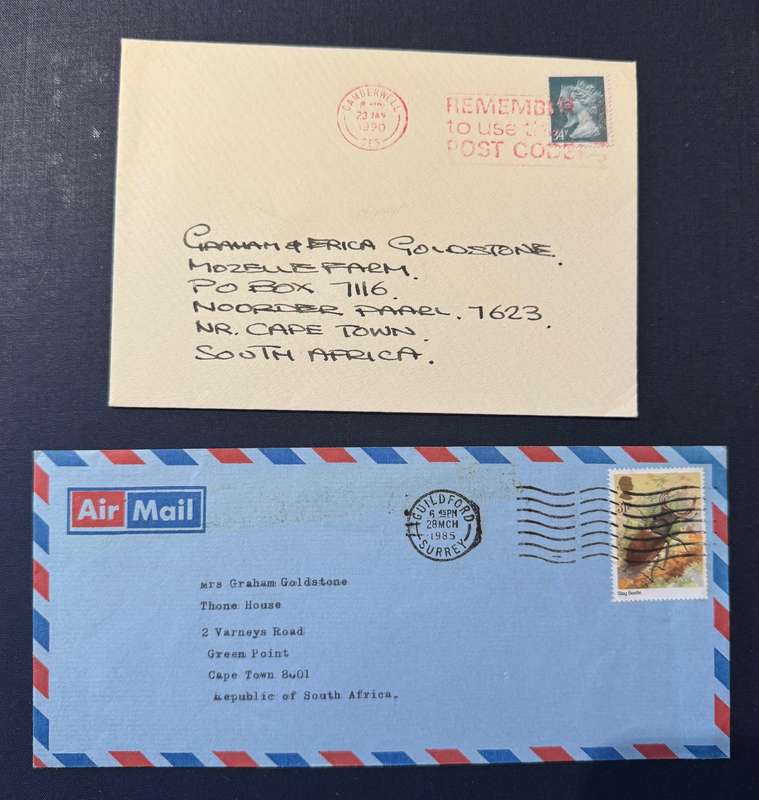 CAMBERWELL
23 JAN
1990
SE5
REMEMBER
to use the
POST CODE
34P
GRAHAM & ERICA GOLDSTONE.
MOZELLE FARM.
PO BOX 7116.
NOORDER PAARL. 7623.
NR. CAPE TOWN.
SOUTH AFRICA.
Air Mail
GUILDFORD
6 45PM
28 MCH
1985
SURREY
31P
Stag Beetle
Mrs Graham Goldstone
Thone House
2 Varneys Road
Green Point
Cape Town 8001
Republic of South Africa.